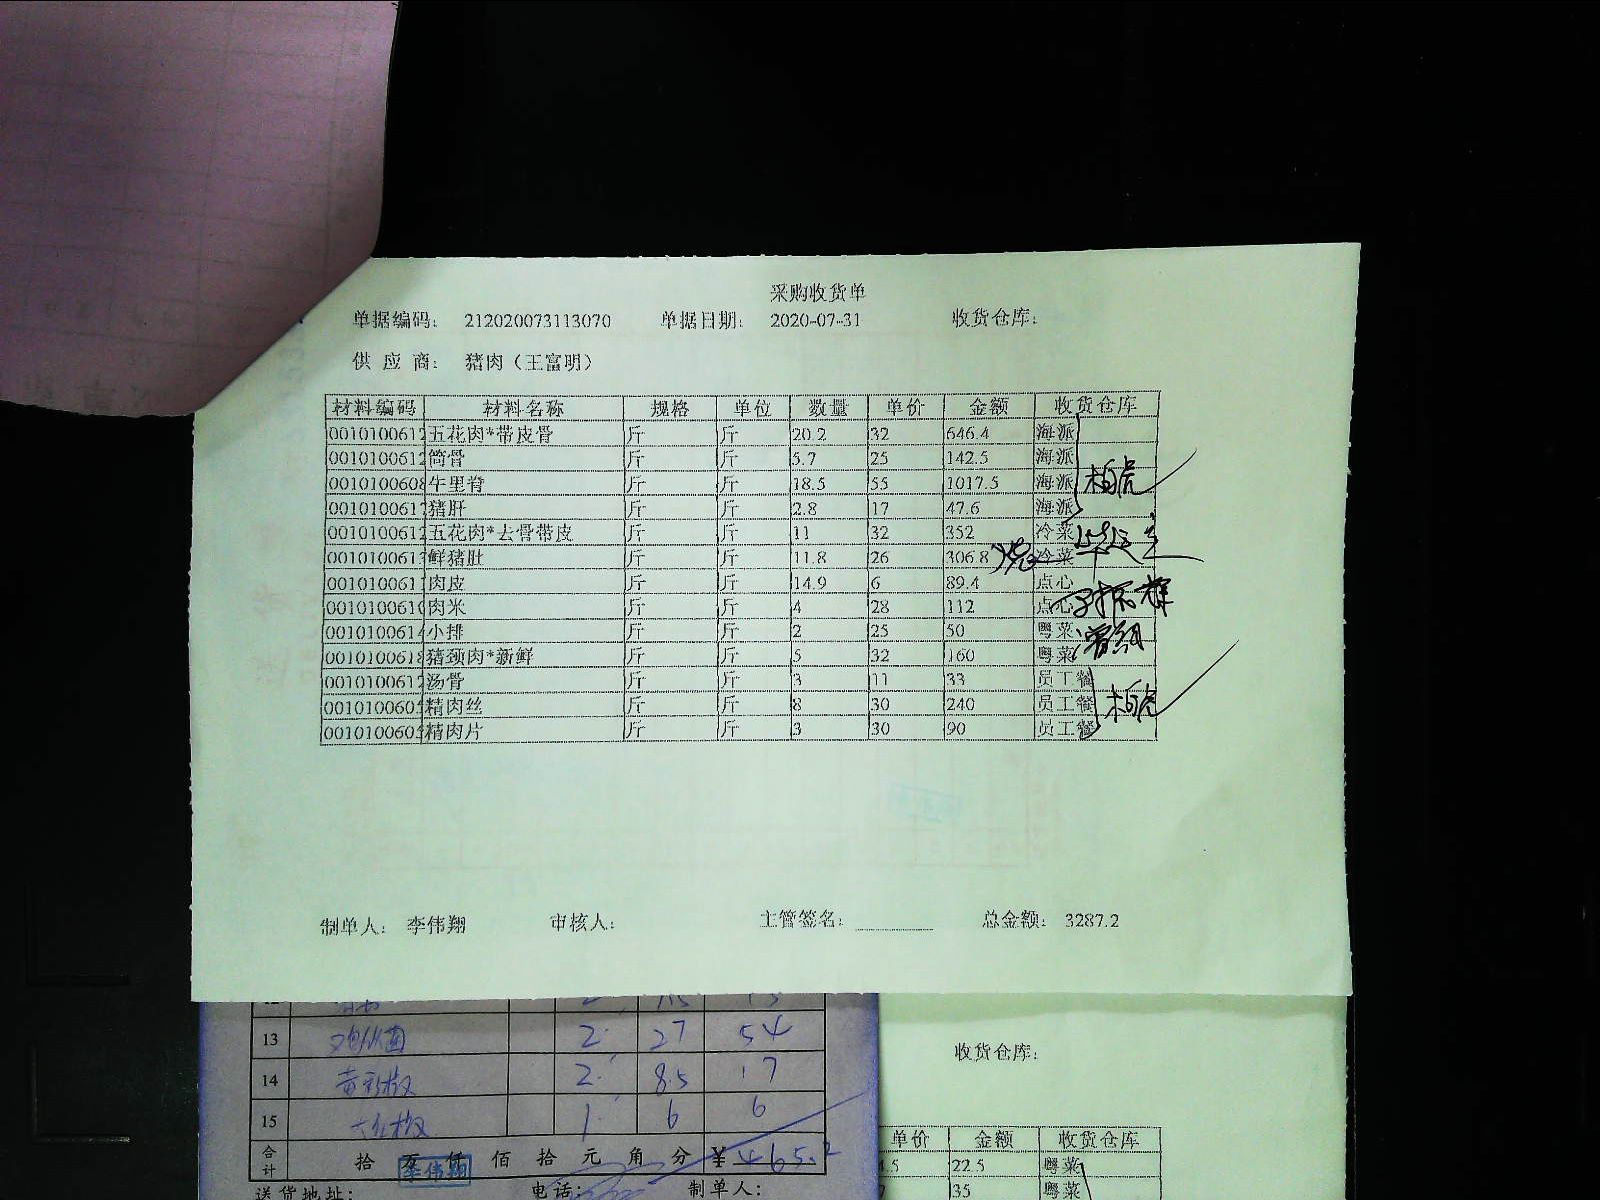 采购收货单
单据编码： 212020073113070 单据日期： 2020-07-31 收货仓库：
供 应 商： 猪肉（王富明）
材料编码 材料名称 规格 单位 数量 单价 金额 收货仓库
0010100612 五花肉*带皮骨 斤 斤 20.2 32 646.4 海派
0010100612 筒骨 斤 斤 5.7 25 142.5 海派
0010100608 牛里脊 斤 斤 18.5 55 1017.5 海派 柏虎
0010100617 猪肝 斤 斤 2.8 17 47.6 海派
0010100612 五花肉*去骨带皮 斤 斤 11 32 352 冷菜
0010100613 鲜猪肚 斤 斤 11.8 26 306.8 冷菜
0010100611 肉皮 斤 斤 14.9 6 89.4 点心
0010100610 肉米 斤 斤 4 28 112 点心
0010100614 小排 斤 斤 2 25 50 粤菜
0010100618 猪颈肉*新鲜 斤 斤 5 32 160 粤菜
0010100612 汤骨 斤 斤 3 11 33 员工餐
0010100605 精肉丝 斤 斤 8 30 240 员工餐 柏虎
0010100605 精肉片 斤 斤 3 30 90 员工餐
制单人： 李伟翔 审核人： 主管签名： 总金额： 3287.2
13 2 27 54
14 2 8.5 17
15 1 6 6
合计 拾 万 仟 佰 拾 元 角 分 ¥ 465.2
李伟翔
送货地址： 电话： 制单人：
收货仓库：
单价 金额 收货仓库
22.5 粤菜
35 粤菜